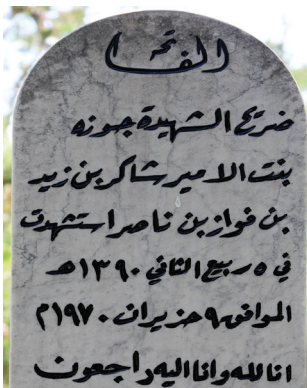 الفاتحة
ضريح الشهيدة جوزه
بنت الامير شاكر بن زيد
بن فواز بن ناصر استشهدت
في ٥ ربيع الثاني ١٣٩٠هـ
الموافق ٩ حزيران ١٩٧٠م
انا لله وانا اليه راجعون